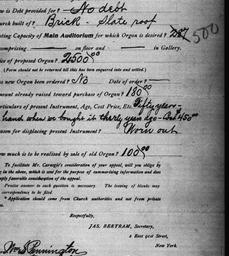 is Debt provided for? No debt
urch built of? Brick - Slate roof
ting Capacity of Main Auditorium for which Organ is desired? 500
omprising on floor and in Gallery.
ice of proposed Organ? 2500⁰⁰
(Form should not be returned till this has been enquired into and settled.)
as new Organ been ordered? No Date of order?
mount already raised toward purchase of Organ? 180⁰⁰
articulars of present Instrument, Age, Cost Price, Etc. Fifty years -
hand when we bought it thirty years ago - Cost $450⁰⁰
eason for displacing present Instrument? Worn out
ow much is to be realised by sale of old Organ? 100⁰⁰
To facilitate Mr. Carnegie's consideration of your appeal, will you oblige by
g in the above, which is sent for the purpose of summarizing information and thus
pply favorable consideration of the appeal.
Precise answer to each question is necessary. The issuing of blanks may
correspondence to be filed.
* Application should come from Church authorities and not from private
Respectfully,
JAS. BERTRAM, Secretary,
2 East 91st Street,
New York
Wm S. Pennington